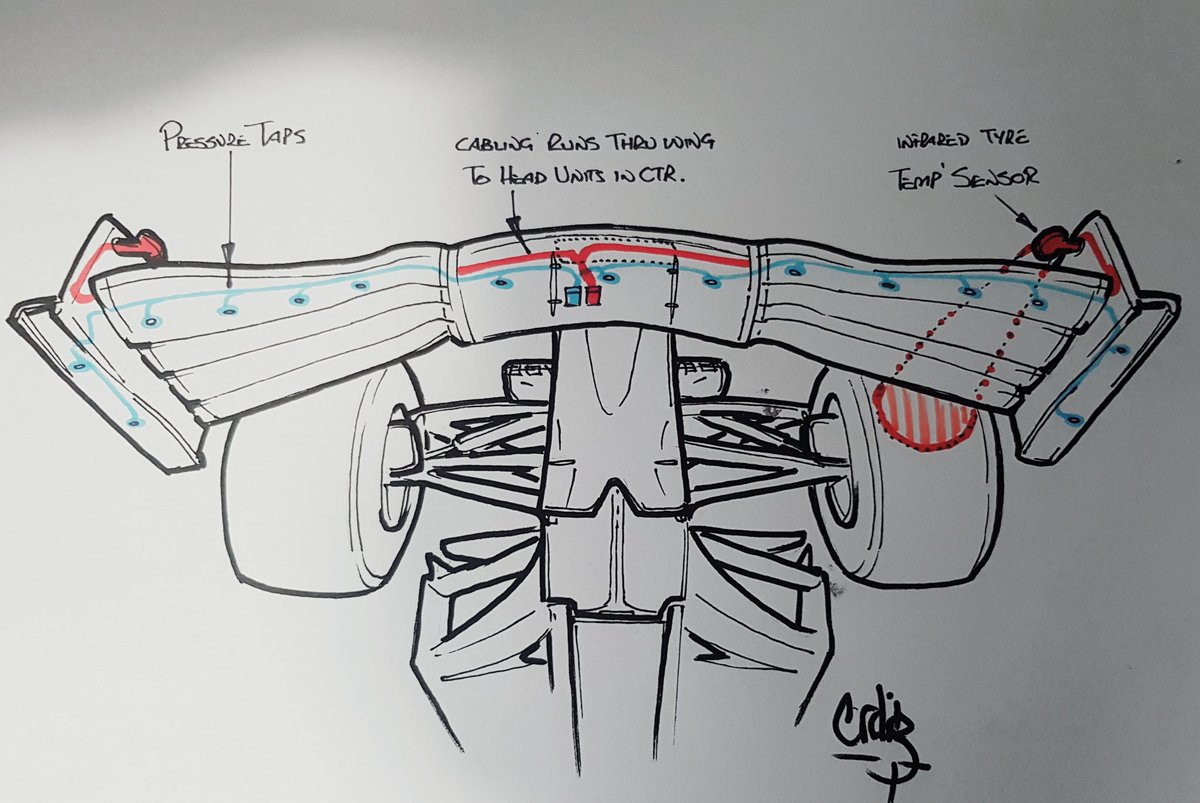 PRESSURE TAPS
CABLING RUNS THRU WING
TO HEAD UNITS IN CTR.
INFRARED TYRE
TEMP' SENSOR
Craig